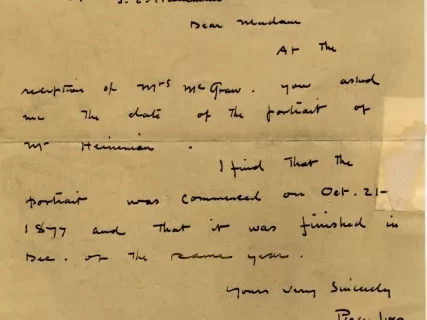 Dear Madam
At the
reception of Mrs McGraw. you asked
me the date of the portrait of
Mr Heineman.
I find that the
portrait was commenced on Oct. 21-
1877 and that it was finished in
Dec. of the same year.
Yours Very Sincerely